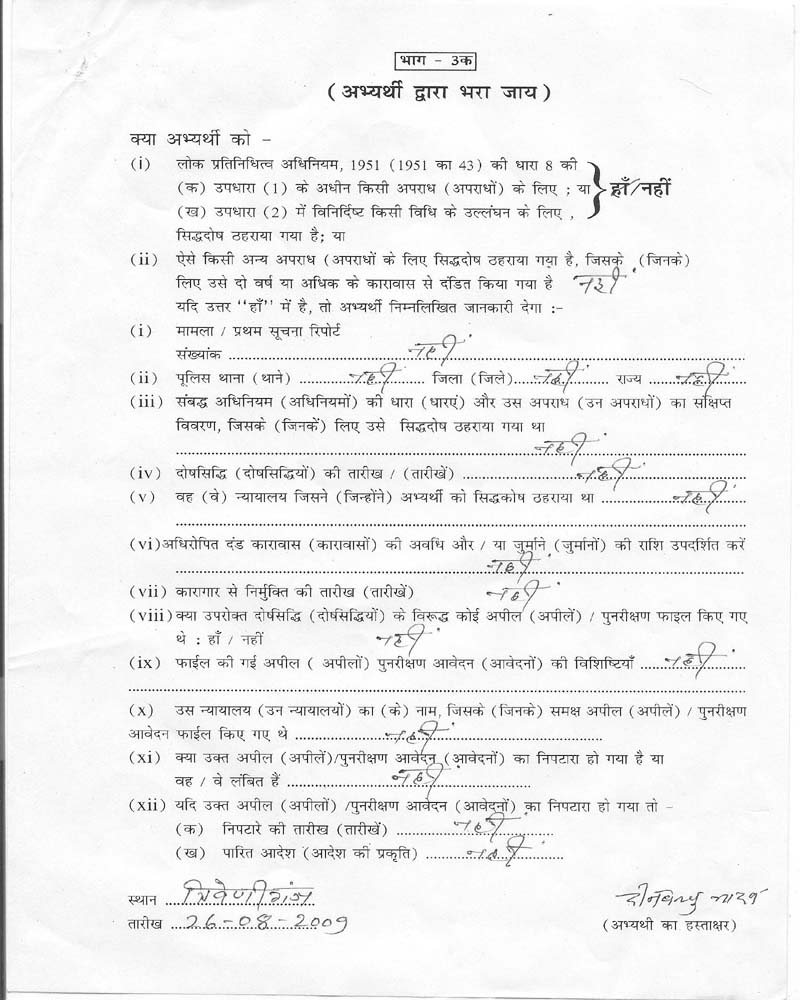 भाग - 3क
(अभ्यर्थी द्वारा भरा जाय)
क्या अभ्यर्थी को -
(i) लोक प्रतिनिधित्व अधिनियम, 1951 (1951 का 43) की धारा 8 की
(क) उपधारा (1) के अधीन किसी अपराध (अपराधों) के लिए ; या
हाँ/नहीं
(ख) उपधारा (2) में विनिर्दिष्ट किसी विधि के उल्लंघन के लिए ,
सिद्धदोष ठहराया गया है; या
(ii) ऐसे किसी अन्य अपराध (अपराधों के लिए सिद्धदोष ठहराया गया है, जिसके (जिनके)
लिए उसे दो वर्ष या अधिक के कारावास से दंडित किया गया है नहीं
यदि उत्तर ''हाँ'' में है, तो अभ्यर्थी निम्नलिखित जानकारी देगा :-
(i) मामला / प्रथम सूचना रिपोर्ट
संख्यांक नहीं
(ii) पूलिस थाना (थाने) नहीं जिला (जिले) नहीं राज्य नहीं
(iii) संबद्ध अधिनियम (अधिनियमों) की धारा (धारएं) और उस अपराध (उन अपराधों) का संक्षिप्त
विवरण, जिसके (जिनकें) लिए उसे सिद्धदोष ठहराया गया था
नहीं
(iv) दोषसिद्धि (दोषसिद्धियों) की तारीख / (तारीखें) नहीं
(v) वह (वे) न्यायालय जिसने (जिन्होंने) अभ्यर्थी को सिद्धकोष ठहराया था नहीं
(vi) अधिरोपित दंड कारावास (कारावासों) की अवधि और / या जुर्माने (जुर्मानों) की राशि उपदर्शित करें
नहीं
(vii) कारागार से निर्मुक्ति की तारीख (तारीखें) नहीं
(viii) क्या उपरोक्त दोर्षसिद्धि (दोर्षसिद्धियों) के विरूद्ध कोई अपील (अपीलें) / पुनरीक्षण फाइल किए गए
थे : हाँ / नहीं नहीं
(ix) फाईल की गई अपील ( अपीलों) पुनरीक्षण आवेदन (आवेदनों) की विशिष्टियाँ नहीं
(x) उस न्यायालय (उन न्यायालयों) का (के) नाम, जिसके (जिनके) समक्ष अपील (अपीलें) / पुनरीक्षण
आवेदन फाईल किए गए थे नहीं
(xi) क्या उक्त अपील (अपीलें)/पुनरीक्षण आवेदन (आवेदनों) का निपटारा हो गया है या
वह / वे लंबित हैं नहीं
(xii) यदि उक्त अपील (अपीलों) /पुनरीक्षण आवेदन (आवेदनों) का निपटारा हो गया तो -
(क) निपटारे की तारीख (तारीखें) नहीं
(ख) पारित आदेश (आदेश की प्रकृति) नहीं
स्थान त्रिवेणीगंज
तारीख 26-08-2009
(अभ्यर्थी का हस्ताक्षर)